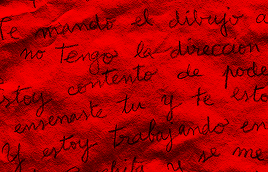 Te mando el dibujo a
no tengo la dirección
estoy contento de pode
enseñaste tu y te esto
y estoy trabajando en
y si me